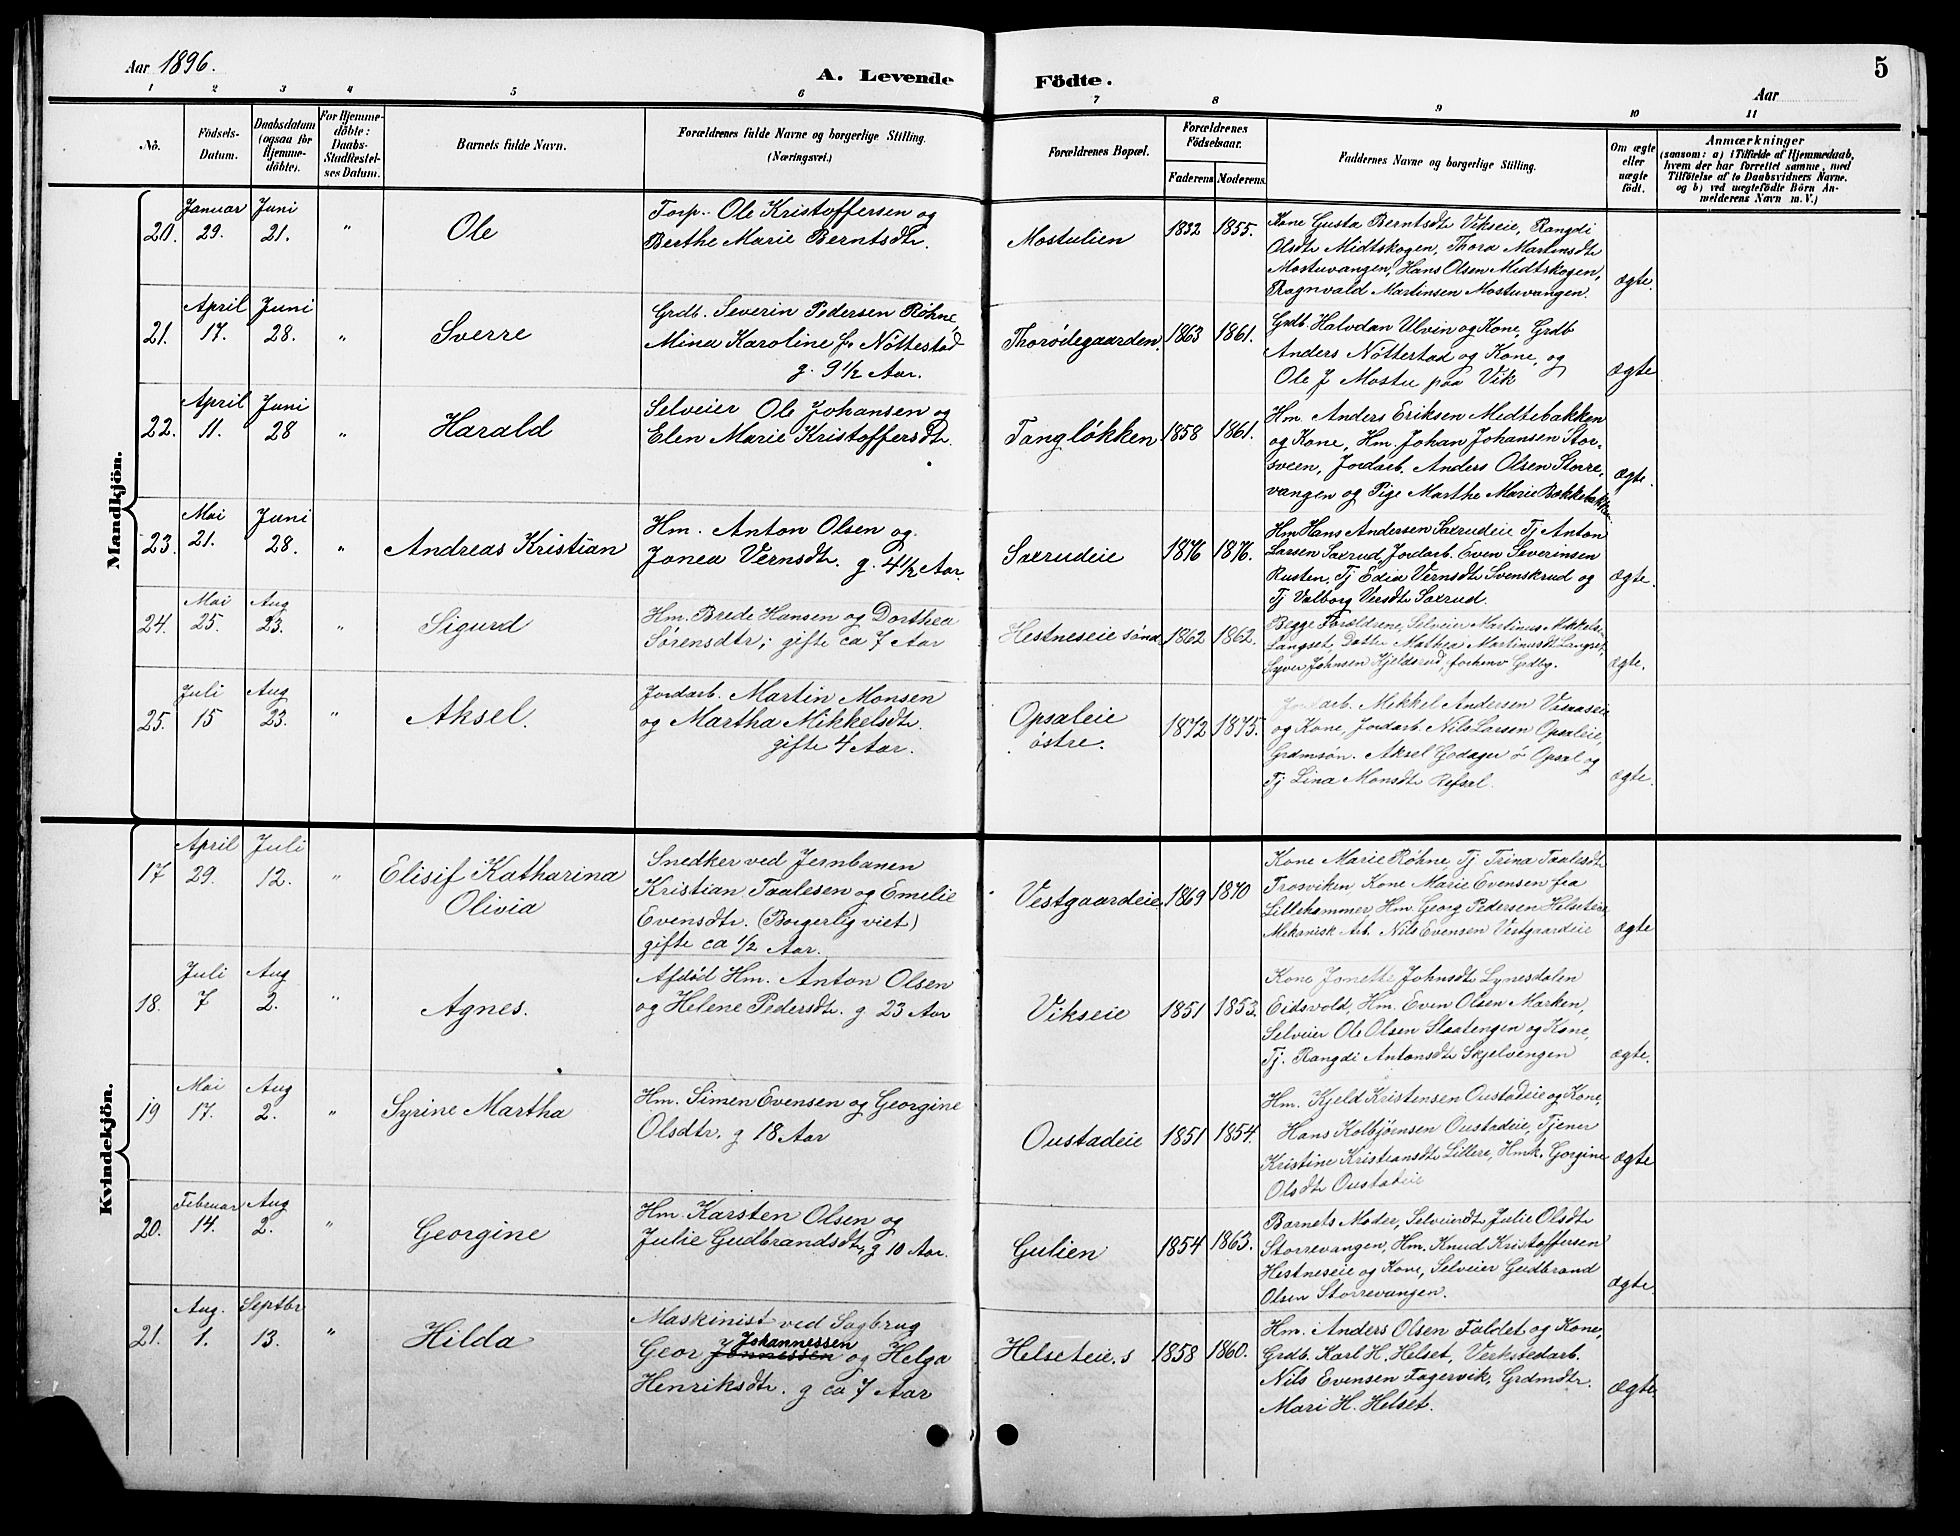 Aar 1896.
A. Levende Födte.
5
Aar
1 2 3 4 5 6 7 8 9 10 11
No.
Födsels-Datum.
Daabsdatum (ogsaa for Hjemme-döbte).
For Hjemme-döbte: Daabs-Stadfæstel-ses Datum.
Barnets fulde Navn.
Forældrenes fulde Navne og borgerlige Stilling. (Næringsvei.)
Forældrenes Bopæl.
Forældrenes Födselsaar.
Faderens Moderens
Faddernes Navne og borgerlige Stilling.
Om ægte eller uægte födt.
Anmærkninger
(saasom: a) i Tilfælde af Hjemmedaab,
hvem der har forrettet samme, med
Tilföielse af to Daabsvidners Navne.
og b) ved uægtefödte Börn An-
melderens Navn m.V.)
Mandkjön.
20. Januar 29. Juni 21. " Ole
Torp. Ole Kristoffersen og
Berthe Marie Berntsdtr.
Mostulien 1832 1855.
Kone Gusta Berntsdtr Vikseie, Rangdi
Olsdtr Midtskogen, Thora Martinsdtr
Mostuvangen, Hans Olsen Midtskogen,
Ragnvald Martinsen Mostuvangen.
ægte.
21. April 17. Juni 28. " Sverre
Grdb. Severin Pedersen Röhne,
Mina Karoline f. Nöttestad
g. 9 1/2 Aar.
Thorödegaarden. 1863 1861.
Grdb. Halvdan Ulvin og Kone, Grdb
Anders Nöttestad og Kone, og
Ole J Mostu paa Vik
ægte
22. April 11. Juni 28 " Harald
Selveier Ole Johansen og
Elen Marie Kristoffersdtr.
Tangløkken 1858 1861.
Hm. Anders Eriksen Midtebakken
og Kone, Hm. Johan Johansen Stor-
sveen, Jordarb. Anders Olsen Storre-
vangen og Pige Marthe Marie Bakkebakken
ægte.
23. Mai 21. Juni 28. " Andreas Kristian
Hm. Anton Olsen og
Jonea Vernsdtr. g. 4 1/2 Aar.
Saxrudeie 1876 1876.
Hm Hans Andersen Saxrudeie Tj Anton
Larsen Saxrud, Jordarb. Even Severinsen
Rusten, Tj Edia Vernsdtr Svenskrud og
Tj Valborg Versdtr Saxrud.
ægte.
24. Mai 25. Aug 23. " Sigurd
Hm. Brede Hansen og Dorthea
Sørensdtr; gifte ca 7 Aar
Hestneseie sönd 1862 1862.
Begge Forældrene, Selveier Martinus Mikkels.
Langset, Datter Mathea Martinusdt Langset,
Syver Johnsen Kjeldsrud, forhenv Grdbg.
ægte.
25. Juli 15 Aug 23. " Aksel.
Jordarb. Martin Monsen
og Martha Mikkelsdtr.
gifte 4 Aar.
Opsaleie
östre.
1872 1875.
Jordarb. Mikkel Andersen Vikseie
og Kone, Jordarb. Nils Larsen Opsaleie,
Grdmsön. Aksel Godager ö Opsal og
Tj Lina Monsdtr Refsal.
ægte.
Kvindekjön.
17 April 29. Juli 12. " Elisif Katharina
Olivia
Snedker ved Jernbanen
Kristian Taalesen og Emelie
Evensdtr. (Borgerlig viet)
gifte ca 1/2 Aar.
Vestgaardeie 1869 1870
Kone Marie Röhne, Tj. Trina Taalesdtr
Trosviken Kone Marie Evensen fra
Lillehammer, Hm. Georg Pedersen Helseteie
Mekanisk Arb. Nils Evensen Vestgaardeie
ægte
18. Juli 7 Aug 2. " Agnes.
Afdöd Hm. Anton Olsen
og Helene Pedersdtr. g 23 Aar
Vikseie 1851 1853.
Kone Jonette Johnsdtr Lynesdalen
Eidsvold, Hm. Even Olsen Marken,
Selveier Ole Olsen Slaatengen og Kone,
Tj. Rangdi Antonsdtr Skjelvengen
ægte.
19 Mai 17. Aug 2. " Syrine Martha
Hm. Simen Evensen og Georgine
Olsdtr. g 18 Aar
Oustadeie 1851 1854.
Hm. Kjeld Kristensen Oustadeie og Kone,
Hans Kolbjørnsen Oustadeie, Tjener
Kristine Kristiansdtr Lillere, Hmk. Gorgine
Olsdtr Oustadeie
ægte
20. Februar 14. Aug 2. " Georgine
Hm. Karsten Olsen og
Julie Gudbrandsdtr, g 10 Aar.
Gulien 1854 1863.
Barnets Moder, Selveierdtr Julie Olsdtr
Storrevangen, Hm. Knud Kristoffersen
Hestneseie og Kone, Selveier Gudbrand
Olsen Storrevangen.
ægte.
21. Aug. 1. Septbr 13. " Hilda
Maskinist ved Sagbrug
Johannessen
Geor Johnessen og Helga
Henriksdtr. g ca 7 Aar
Helseteie. s 1858 1860.
Hm. Anders Olsen Faldet og Kone,
Grdb. Karl H. Helset, Verkstedarb.
Nils Evensen Fagervik, Grdmdtr.
Mari H. Helset.
ægte.